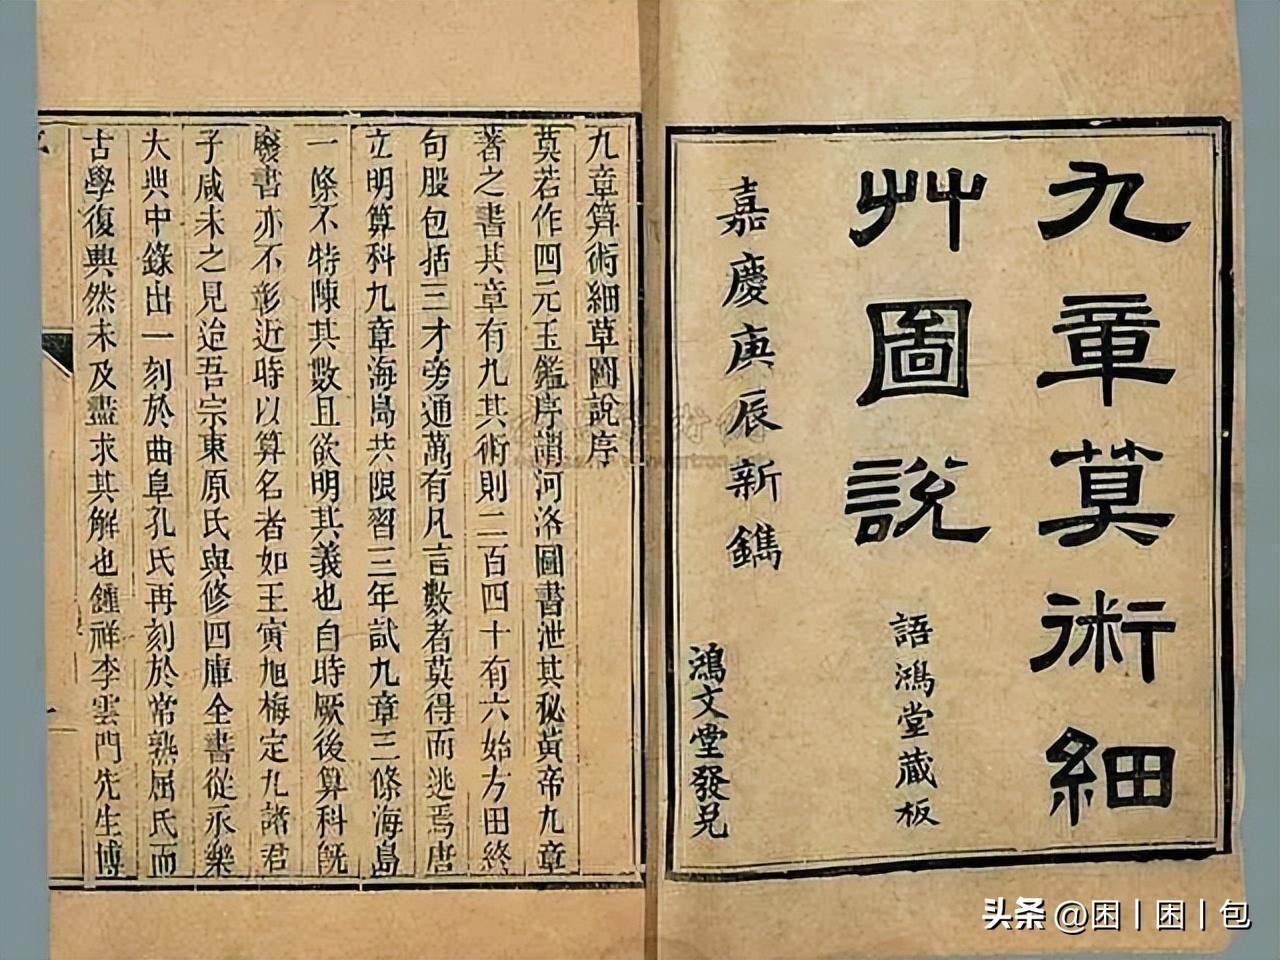 九章算術細
艸圖說
語鴻堂藏板
嘉慶庚辰新鐫
鴻文堂發兌
九章算術細草圖說序
莫若作四元玉鑑序謂河洛圖書泄其秘黃帝九章
著之書其章有九其術則二百四十有六始方田終
句股包括三才旁通萬有凡言數者莫得而逃焉唐
立明算科九章海島共限習三年試九章三條海島
一條不特陳其數且欲明其義也自時厥後算科旣
廢書亦不彰近時以算名者如王寅旭梅定九諸君
子咸未之見迨吾宗東原氏與修四庫全書從永樂
大典中錄出一刻於曲阜孔氏再刻於常熟屈氏而
古學復興然未及盡求其解也鍾祥李雲門先生博
头条 @困丨困丨包